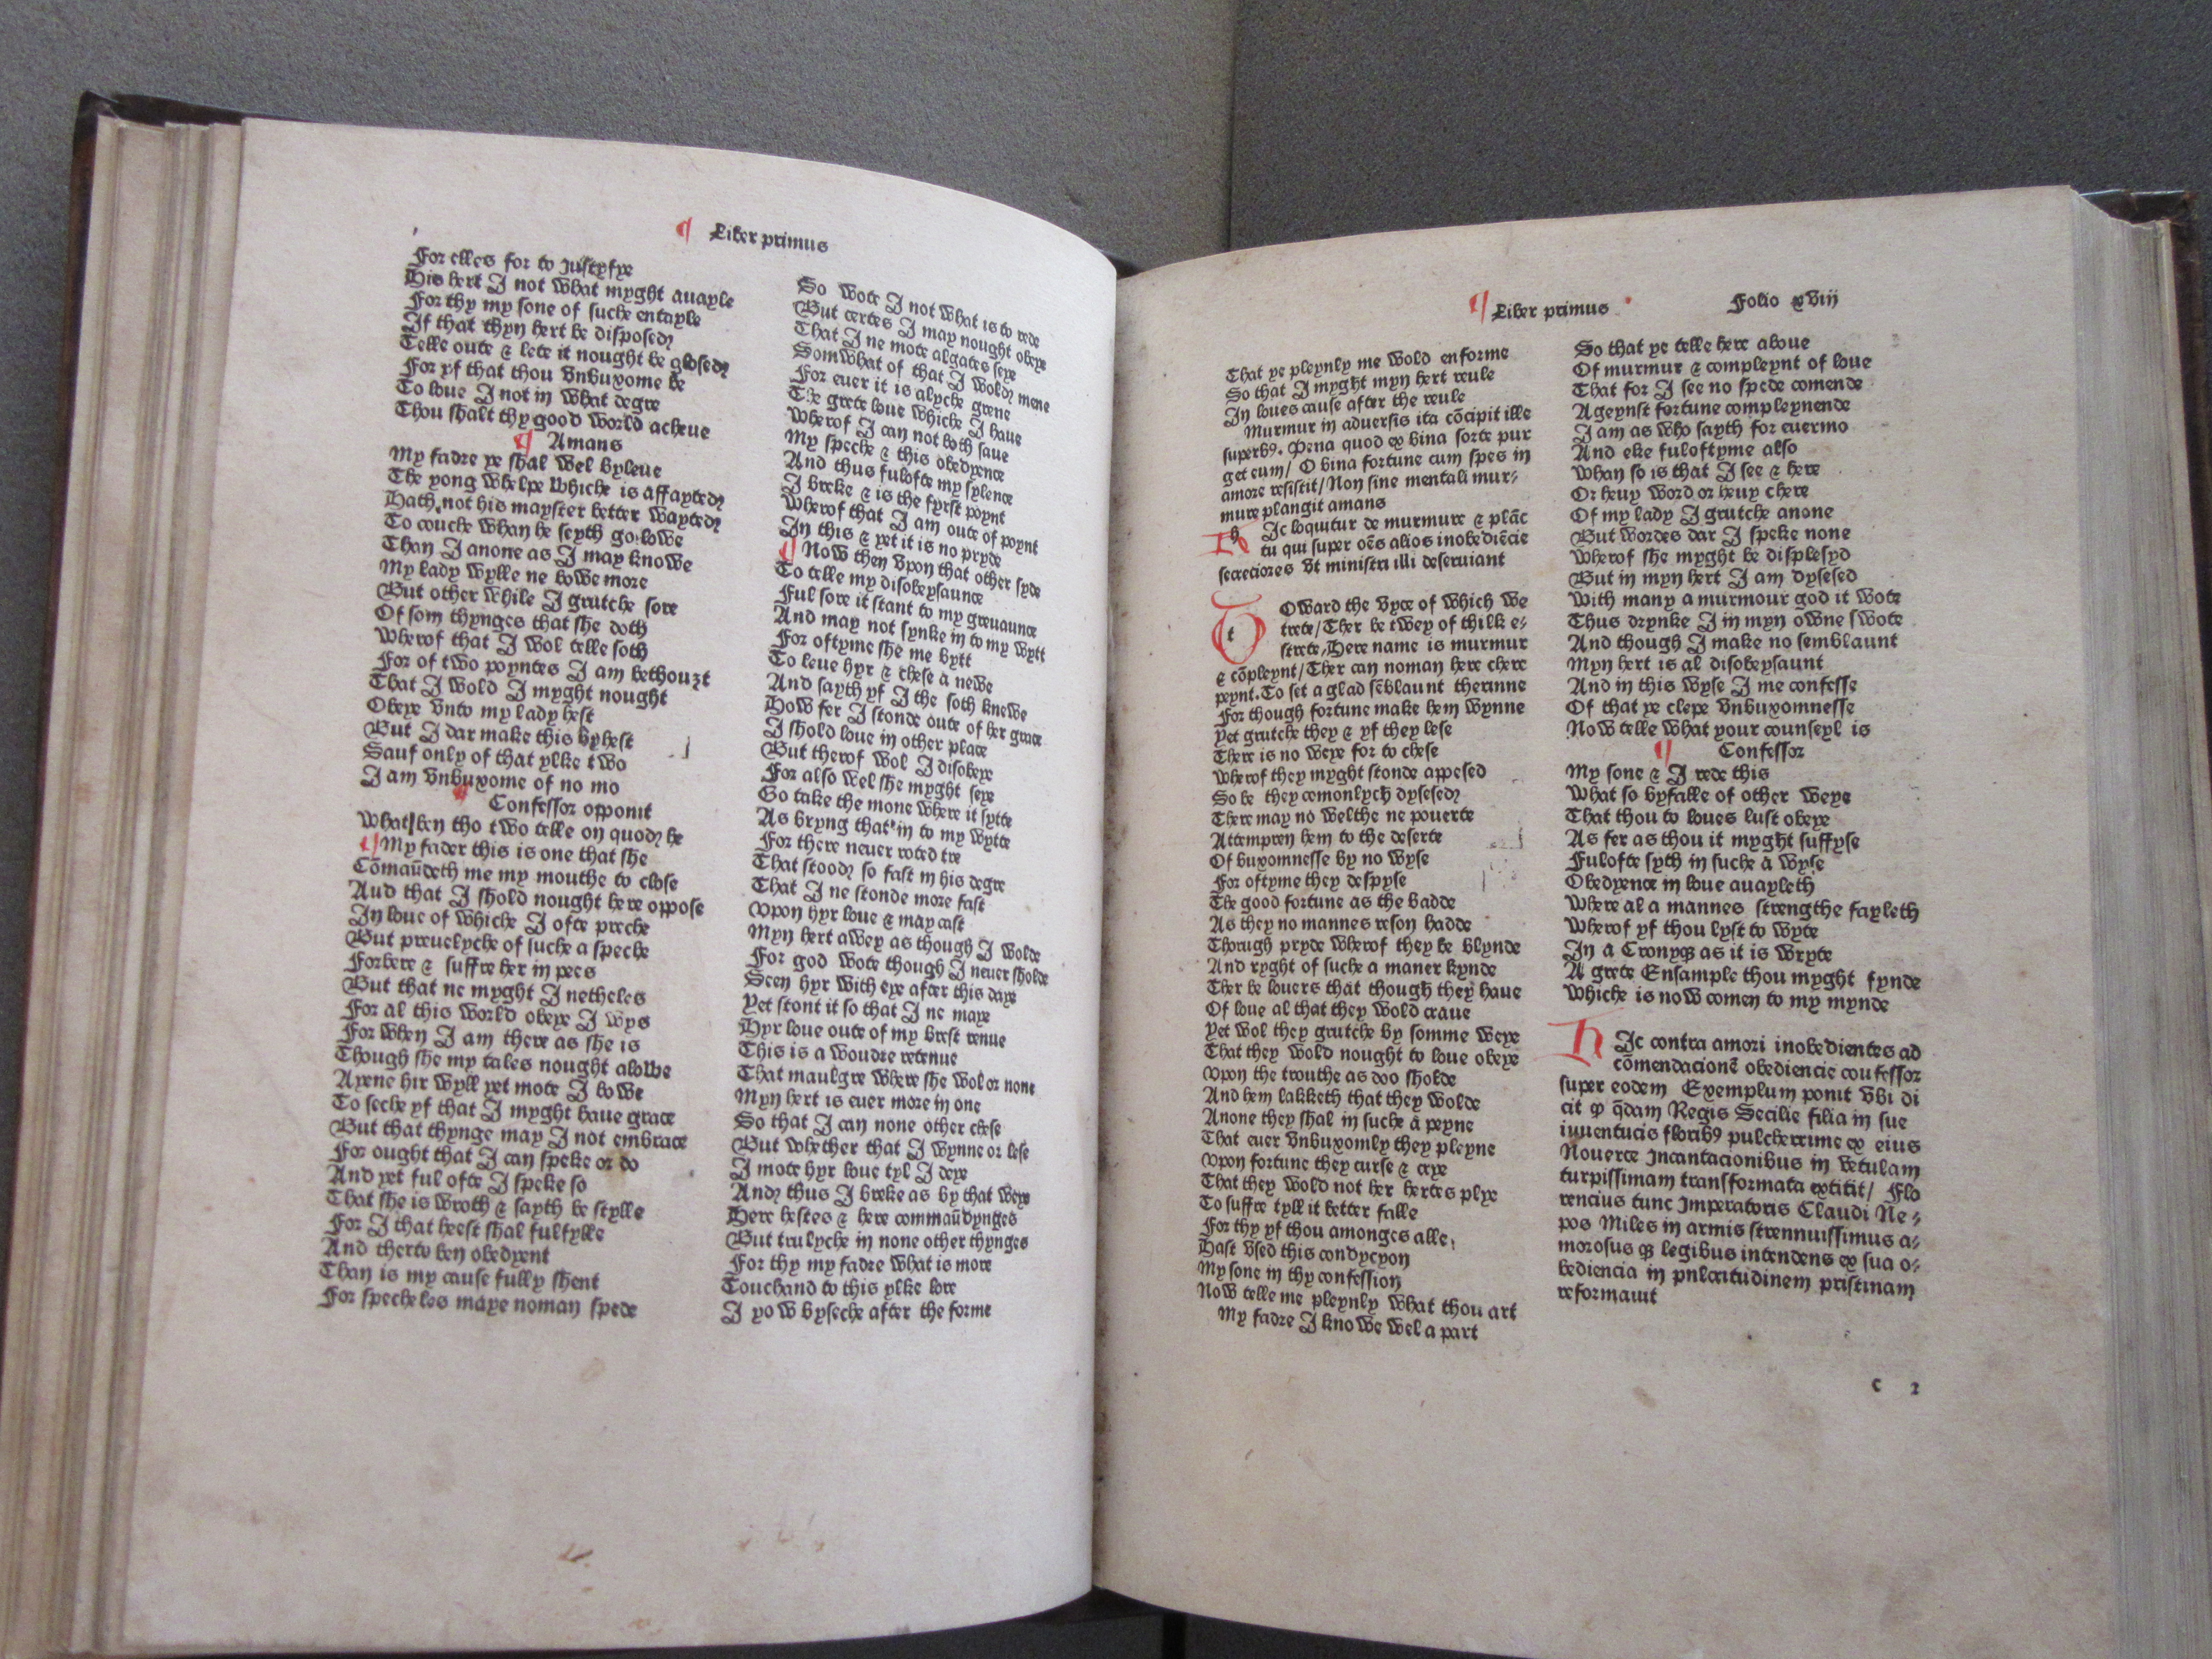 ¶ Liber primus
For elles for to justyfye
His hert I not what myght auayle
For thy my sone of suche entayle
If that thyn hert be disposed
Telle oute & lete it nought be glosed
For yf that thou vnbuxome be
To loue I not in what degre
Thou shalt thy good world acheue
¶ Amans
My fadre ye shal wel byleue
The yong whelpe whiche is affayted
Hath not his mayster better wayted
To couche whan he seyth go lowe
Than I anone as I may knowe
My lady wylle ne bowe more
But other while I grutche sore
Of som thynges that she doth
wherof that I wol telle soth
For of two poyntes I am bethouzt
That I wold I myght nought
Obeye vnto my lady hest
But I dar make this byhest
Sauf only of that ylke two
I am vnbuxome of no mo
¶ Confessor opponit
what ben tho two telle on quod he
¶ My fader this is one that she
Cōmaūdeth me my mouthe to close
And that I shold nought here oppose
In loue of whiche I ofte preche
But preuelyche of suche a speche
Forbere & suffre her in pees
But that ne myght I netheles
For al this world obeye I wys
For when I am there as she is
Though she my tales nought alowe
Ayene hir wyll yet mote I bowe
To seche yf that I myght haue grace
But that thynge may I not embrace
For ought that I can speke or do
And yet ful ofte I speke so
That she is wroth & sayth be stylle
For I that heest shal fulfylle
And therto ben obedyent
Than is my cause fully shent
For specheles maye noman spede
So wote I not what is to rede
But certes I may nought obeye
That I ne mote algates seye
Somwhat of that I wold mene
For euer it is alyche grene
The grete loue whiche I haue
wherof I can not both saue
My speche & this obedyence
And thus fulofte my sylence
I breke & is the fyrst poynt
wherof that I am oute of poynt
In this & yet it is no pryde
¶ Now then vpon that other syde
To telle my disobeysaunce
Ful sore it stant to my greuaunce
And may not synke in to my wytt
For oftyme she me bytt
To leue hyr & chese a newe
And sayth yf I the soth knewe
How fer I stonde oute of her grace
I shold loue in other place
But therof wol I disobeye
For also wel she myght seye
Go take the mone where it sytte
As bryng that in to my wytte
For there neuer roted tre
That stood so fast in his degre
That I ne stonde more fast
vpon hyr loue & may cast
Myn hert awey as though I wolde
For god wote though I neuer sholde
Seen hyr with eye after this daye
Yet stont it so that I ne maye
Hyr loue oute of my brest renue
This is a woudre retenue
That maulgre where she wol or none
Myn hert is euer more in one
So that I can none other chese
But whether that I wynne or lese
I mote hyr loue tyl I deye
And thus I breke as by that weye
Here hestes & here commaūdynges
But trulyche in none other thynges
For thy my fadre what is more
Touchand to this ylke lore
I yow byseche after the forme
¶ Liber primus Folio xviij
That ye pleynly me wold enforme
So that I myght myn hert reule
In loues cause after the reule
Murmur in aduersis ita cōcipit ille
superbꝰ. Pena quod ex bina sorte pur
get eum/ O bina fortune cum spes in
amore resistit/ Non sine mentali mur⸗
mure plangit amans
h Ic loquitur de murmure & plāc
tu qui super oēs alios inobediēcie
secreciores vt ministri illi deseruiant
t Oward the vyce of which we
trete/ Ther be twey of thilk e⸗
strete, Here name is murmur
& cōpleynt/ Ther can noman here chere
peynt. To set a glad sēblaunt therinne
For though fortune make hem wynne
Yet grutche they & yf they lese
There is no weye for to chese
wherof they myght stonde appesed
So be they comonlych dysesed
There may no welthe ne pouerte
Attempren hem to the deserte
Of buxomnesse by no wyse
For oftyme they despyse
The good fortune as the badde
As they no mannes reson hadde
Thorugh pryde wherof they be blynde
And ryght of suche a maner kynde
Ther be louers that though they haue
Of loue al that they wold craue
Yet wol they grutche by somme weye
That they wold nought to loue obeye
vpon the trouthe as doo sholde
And hem lakketh that they wolde
Anone they shal in suche a peyne
That euer vnbuxomly they pleyne
vpon fortune they curse & crye
That they wold not her hertes plye
To suffre tyll it better falle
For thy yf thou amonges alle
Hast vsed this condycyon
My sone in thy confession
Now telle me pleynly what thou art
My fadre I knowe wel a part
So that ye telle here aboue
Of murmur & compleynt of loue
That for I see no spede comende
Ageynst fortune compleynende
I am as who sayth for euermo
And eke fuloftyme also
whan so is that I see & here
Or heuy word or heuy chere
Of my lady I grutche anone
But wordes dar I speke none
wherof she myght be displesyd
But in myn hert I am dysesed
with many a murmour god it wote
Thus drynke I in myn owne swote
And though I make no semblaunt
Myn hert is al disobeysaunt
And in this wyse I me confesse
Of that ye clepe vnbuxomnesse
Now telle what your counseyl is
¶ Confessor
My sone & I rede this
what so byfalle of other weye
That thou to loues lust obeye
As fer as thou it myght suffyse
Fulofte syth in suche a wyse
Obedyence in loue auayleth
where al a mannes strengthe fayleth
wherof yf thou lyst to wyte
In a Cronyqꝫ as it is wryte
A grete Ensample thou myght fynde
whiche is now comen to my mynde
h Ic contra amori inobedientes ad
cōmendacionē obediencie confessor
super eodem Exemplum ponit vbi di
cit ꝙ q̄dam Regis Secilie filia in sue
iuuentutis floribꝰ pulcherrime ex eius
Nouerce Incantacionibus in vetulam
turpissimam transformata extitit/ Flo
rencius tunc Imperatoris Claudi Ne⸗
pos Miles in armis strennuissimus a⸗
morosus qꝫ legibus intendens ex sua o⸗
bediencia in pulcritudinem pristinam
reformauit
c 2